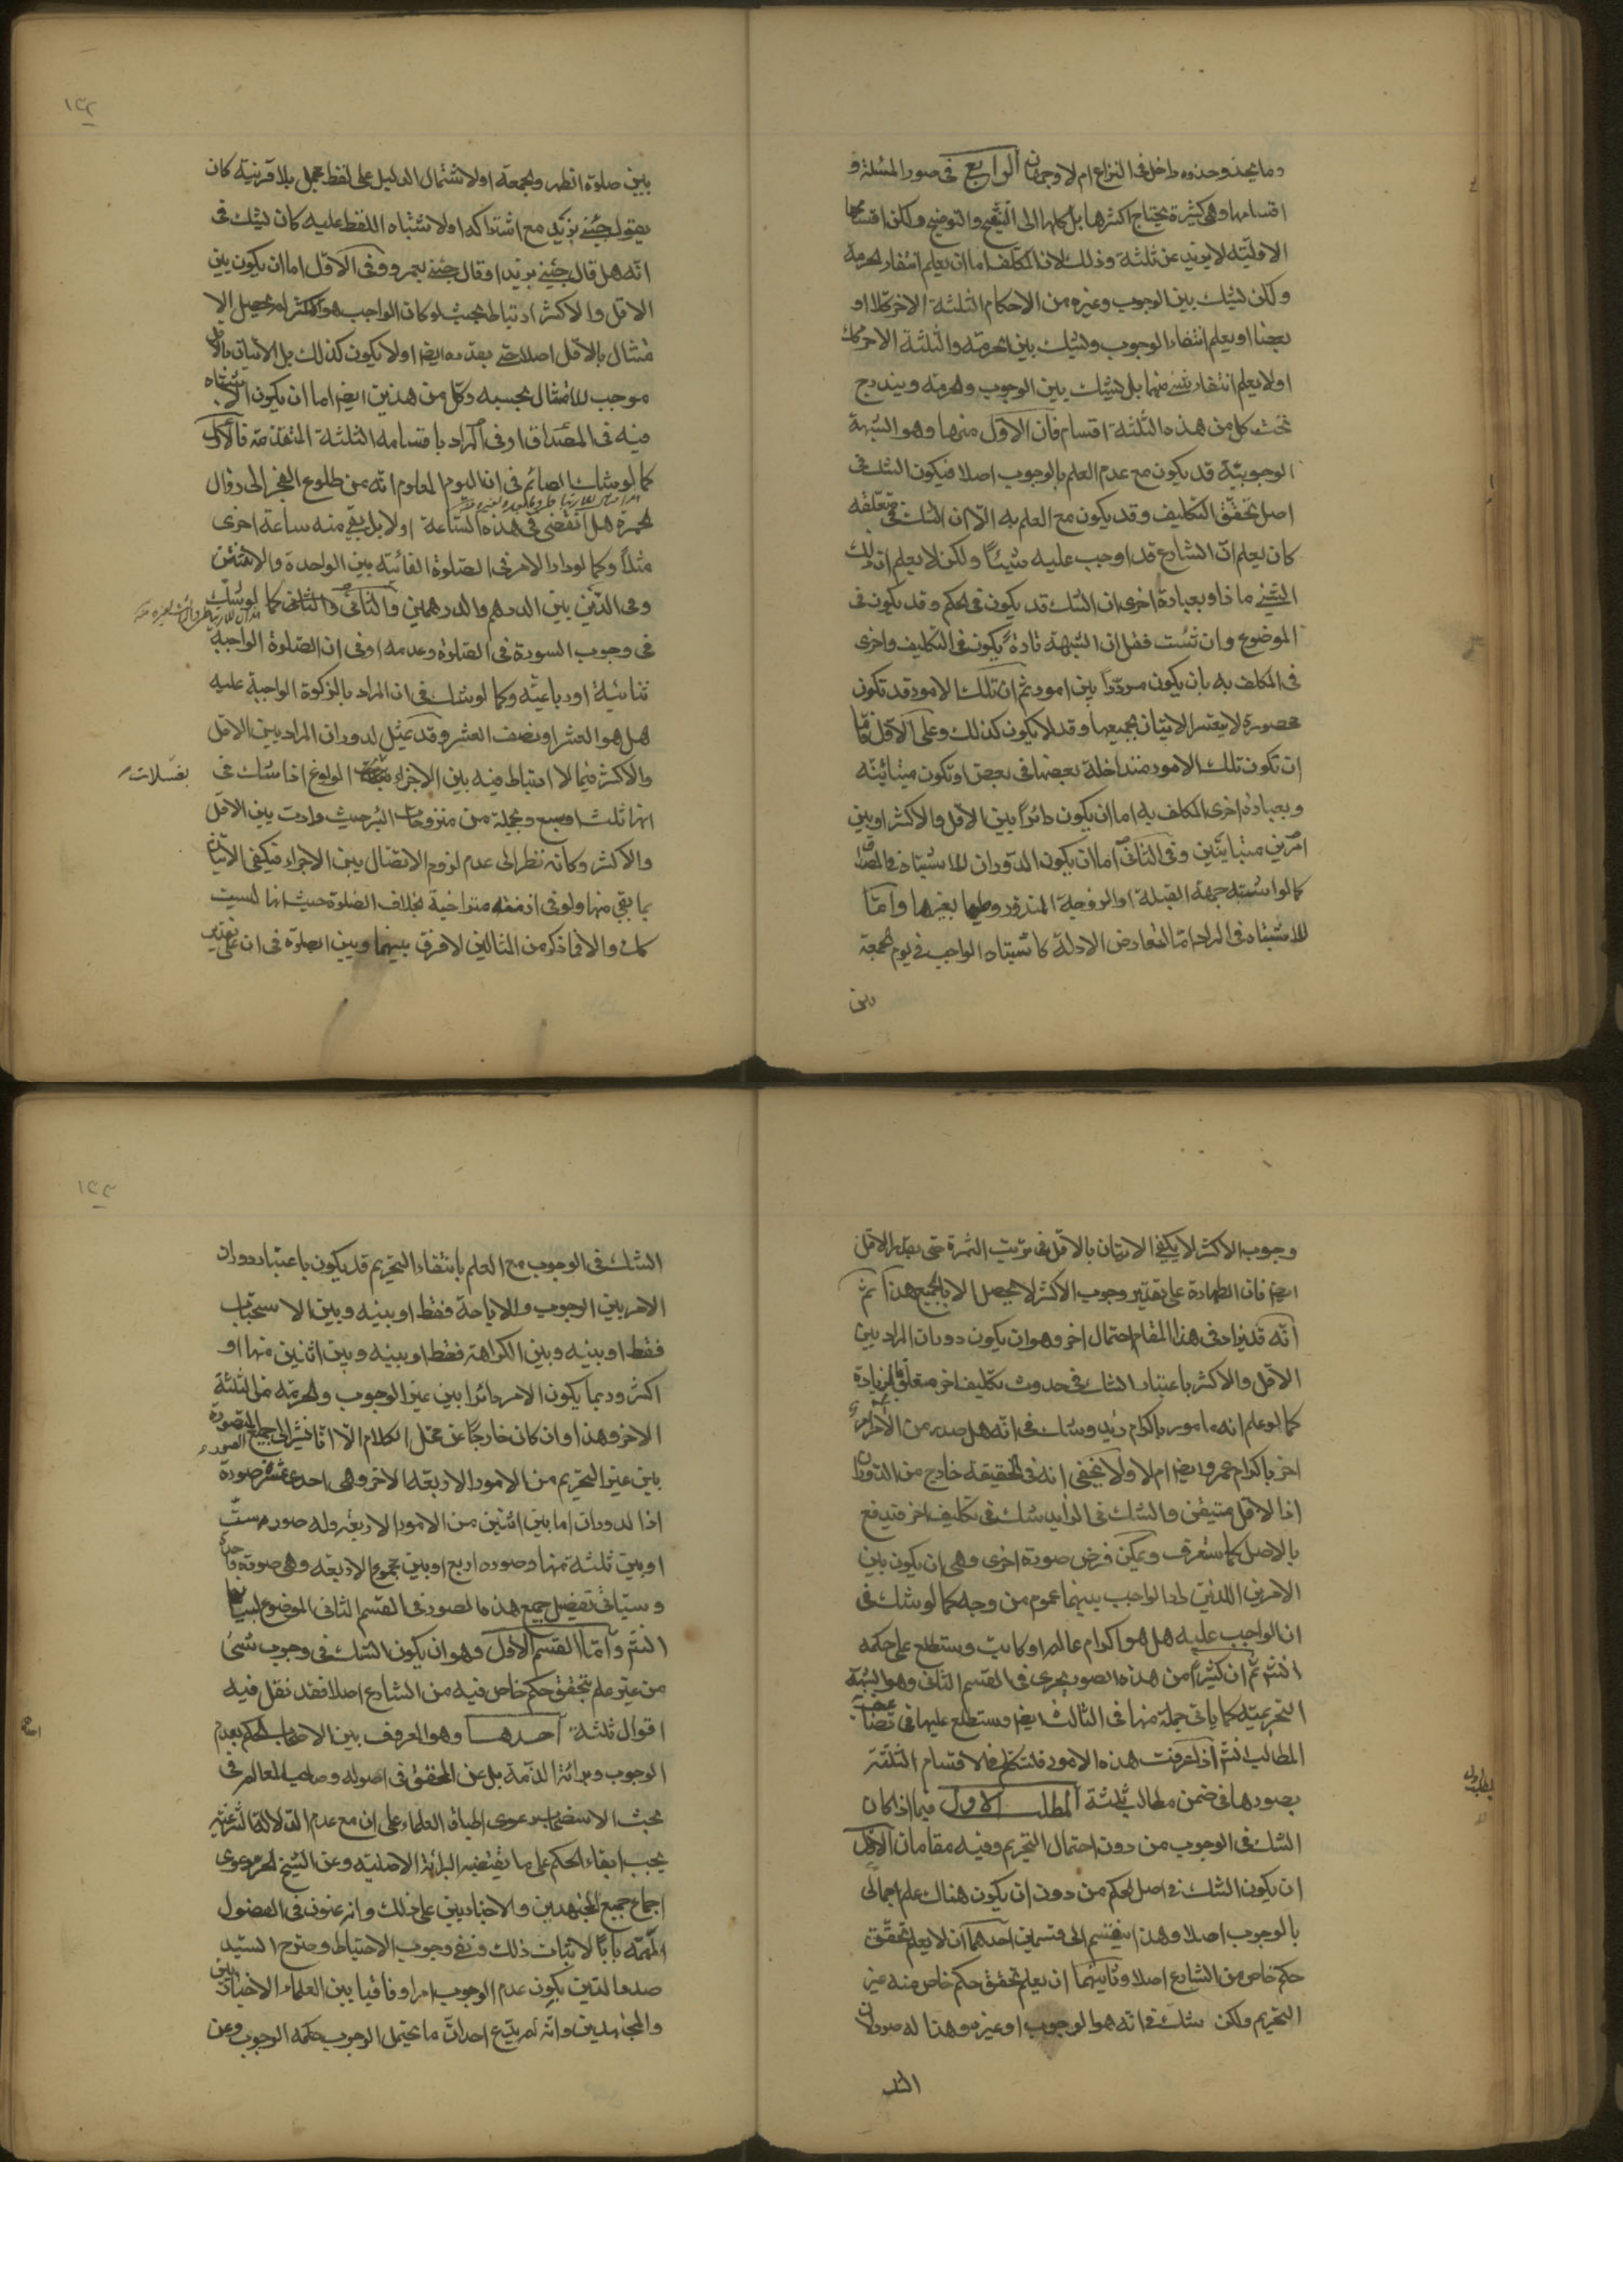 وما يحذو حذوه داخل فى النزاع ام لا وجهان الرابع فى صور المسئلة و
اقسامها وهى كثيرة يحتاج اكثرها بل كلها الى التنقيح والتوضيح ولكن اقسامها
الاولية لا يزيد عن ثلثة وذلك لان المكلف اما ان يعلم انتفاء الحرمة
ولكن يشك بين الوجوب وغيره من الاحكام الثلثة الاخر كلا او
بعضا او يعلم انتفاء الوجوب ويشك بين الحرمة والثلثة الاخر كك
او لا يعلم انتفاء شئ منهما بل يشك بين الوجوب والحرمة ويندرج
تحت كل من هذه الثلثة اقسام فان الاول منها وهو الشبهة
الوجوبية قد يكون مع عدم العلم بالوجوب اصلا فيكون الشك فى
اصل تحقق التكليف وقد يكون مع العلم به الا ان الشك فى متعلقه
كان يعلم ان الشارع قد اوجب عليه شيئا ولكن لا يعلم ان ذلك
الشئ ما ذا وبعبارة اخرى ان الشك قد يكون فى الحكم وقد يكون فى
الموضوع وان شئت فقل ان الشبهة تارة يكون فى التكليف واخرى
فى المكلف به بان يكون مرددا بين امور ثم ان تلك الامور قد تكون
محصورة لا يتعسر الاتيان بجميعها وقد لا يكون كذلك وعلى الاول فاما
ان تكون تلك الامور متداخلة بعضها فى بعض او تكون متبائنة
وبعبارة اخرى المكلف به اما ان يكون دائرا بين الاقل والاكثر او بين
امرين متباينين وفى الثانى اما ان يكون الدوران للاشتباه فى المصداق
كما لو اشتبه جهة القبلة او الزوجة المنذور وطيها بغيرها واما
للاشتباه فى المراد اما لتعارض الادلة كاشتباه الواجب فى يوم الجمعة
بين
١٣٢
بين صلوة الظهر والجمعة او لاشتمال الدليل على لفظ مجمل بلا قرينة كان
يقول جئنى بزيد مع اشتراكه او لاشتباه اللفظ عليه كان يشك فى
انه هل قال جئنى بزيد او قال جئنى بعمرو وفى الاول اما ان يكون بين
الاقل والاكثر ارتباط بحيث لو كان الواجب هو الاكثر لم يحصل الا
متثال بالاقل اصلا حتى بقدره ايضا او لا يكون كذلك بل الاتيان بالاقل
موجب للامتثال بحسبه وكل من هذين ايضا اما ان يكون الاشتباه
فيه فى المصداق او فى المراد باقسامه الثلثة المتقدمة فالاول
كما لو شك الصائم فى ان اليوم المعلوم انه من طلوع الفجر الى زوال
الحمرة هل انقضى فى هذه الساعة او لا بل بقى منه ساعة اخرى
مثلا وكما لو دار الامر فى الصلوة الفائتة بين الواحدة والاثنتين
وفى الدين بين الدرهم والدرهمين والثانى كما لو شك
فى وجوب السورة فى الصلوة وعدمه او فى ان الصلوة الواجبة
ثنائية او رباعية وكما لو شك فى ان المراد بالزكوة الواجبة عليه
هل هو العشر او نصف العشر وقد يمثل لدوران المراد بين الاقل
والاكثر فيما لا ارتباط فيه بين الاجزاء الولوغ اذا شك فى
بغسلات
انها ثلث او سبع وبجملة من منزوحات البئر حيث دارت بين الاقل
والاكثر وكانه نظر الى عدم لزوم الاتصال بين الاجزاء فيكفى الاتيان
بما بقى منها ولو فى ازمنة متراخية بخلاف الصلوة حيث انها ليست
كك والا فما ذكر من المثالين لا فرق بينهما وبين الصلوة فى ان على تقدير
وجوب الاكثر لا يكفى الاتيان بالاقل فى ترتب الثمرة حتى بقدر الاقل
ايضا فان الطهارة على تقدير وجوب الاكثر لا يحصل الا بالجميع هذا ثم
انه قد يزاد فى هذا المقام احتمال اخر وهو ان يكون دوران المراد بين
الاقل والاكثر باعتبار الشك فى حدوث تكليف اخر متعلق بالزيادة
كما لو علم انه مامور باكرام زيد وشك فى انه هل صدر من الامر امر
اخر باكرام عمرو ايضا ام لا ولا يخفى انه فى الحقيقة خارج من الدوران
اذا الاقل متيقن والشك فى الزايد شك فى تكليف اخر فيدفع
بالاصل كما ستعرف ويمكن فرض صورة اخرى وهى ان يكون بين
الامرين اللذين الواجب بينهما عموم من وجه كما لو شك فى
ان الواجب عليه هل هو اكرام عالم او كاتب وستطلع على حكمه
انشم ثم ان كثيرا من هذه الصور يجرى فى القسم الثانى وهو الشبهة
التحريمية كما ياتى جملة منها فى الثالث ايضا وستطلع عليها فى تضاعيف
المطالب انشم اذا عرفت هذه الامور فلنتكلم فى الاقسام الثلثة
بصورها فى ضمن مطالب ثلثة المطلب الاول فيما اذا كان
الشك فى الوجوب من دون احتمال التحريم وفيه مقامان الاول
ان يكون الشك فى اصل الحكم من دون ان يكون هناك علم اجمالى
بالوجوب اصلا وهذا ينقسم الى قسمين احدهما ان لا يعلم تحقق
حكم خاص من الشارع اصلا وثانيهما ان يعلم تحقق حكم خاص منه غير
التحريم ولكن شك فى انه هو الوجوب او غيره وهذا له صور لان
الشك
١٣٣
الشك فى الوجوب مع العلم بانتفاء التحريم قد يكون باعتبار دوران
الامر بين الوجوب والاباحة فقط او بينه وبين الاستحباب
فقط او بينه وبين الكراهة فقط او بينه وبين اثنين منها او
اكثر وربما يكون الامر دائرا بين غير الوجوب والحرمة من الثلثة
الاخر وهذا وان كان خارجا عن محل الكلام الا انا نشير الى جميع الصور المتصورة
بين غير التحريم من الامور الاربعة الاخر وهى احدى عشرة صورة
اذ الدوران اما بين اثنين من الامور الاربعة وله صور ست
او بين ثلثة منها وصوره اربع او بين مجموع الاربعة وهى صورة واحدة
وسياتى تفصيل جميع هذه الصور فى القسم الثانى الموضوع لبيانها
انشم واما القسم الاول وهو ان يكون الشك فى وجوب شئ
من غير علم بتحقق حكم خاص فيه من الشارع اصلا فقد نقل فيه
اقوال ثلثة احدها وهو المعروف بين الاصحاب الحكم بعدم
الوجوب وبرائة الذمة بل عن المحقق فى اصوله وصاحب المعالم فى
بحث الاستصحاب دعوى اطباق العلماء على ان مع عدم الدلالة الشرعية
يجب ابقاء الحكم على ما يقتضيه البرائة الاصلية وعن الشيخ الحر دعوى
اجماع جميع المجتهدين والاخباريين على ذلك وانه عنون فى الفصول
المهمة بابا لاثبات ذلك ونفى وجوب الاحتياط وصرح السيد
صدر الدين بكون عدم الوجوب امرا وفاقيا بين العلماء الاخباريين
والمجتهدين وانه لم يدع احد ان ما يحتمل الوجوب حكمه الوجوب وعن